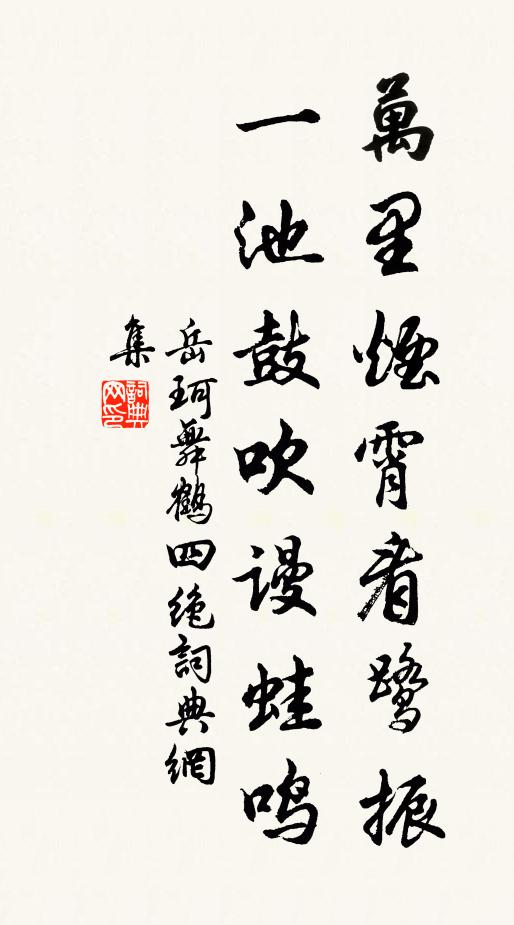 萬里煙霄看鹭振
一池鼓吹謾蛙鸣
岳珂舞鶴四絶詞典網
集
詞典网印